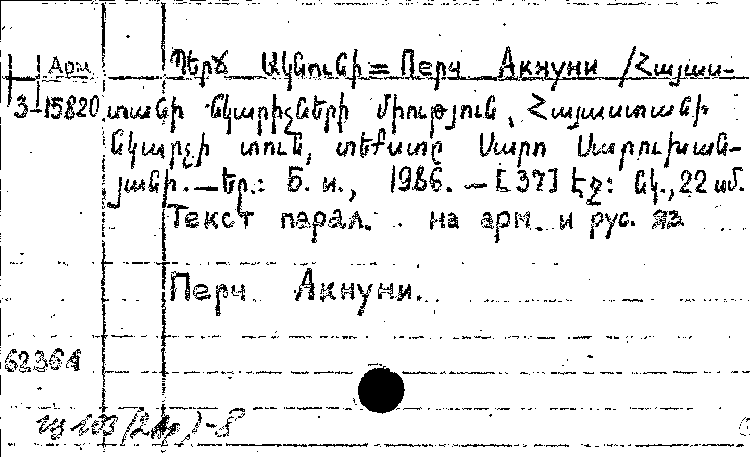 Арм
3-15820
Պերճ Ակնունի = Перч Акнуни / Հայաս-
տանի նկարիչների միություն, Հայաստանի
նկարչի տուն, տեքստը Սարո Սարուխան-
յանի. — Եր.: Б. и., 1986. — [37] էջ: նկ., 22 սմ.
Текст парал. на арм. и рус. яз
Перч Акнуни.
62364